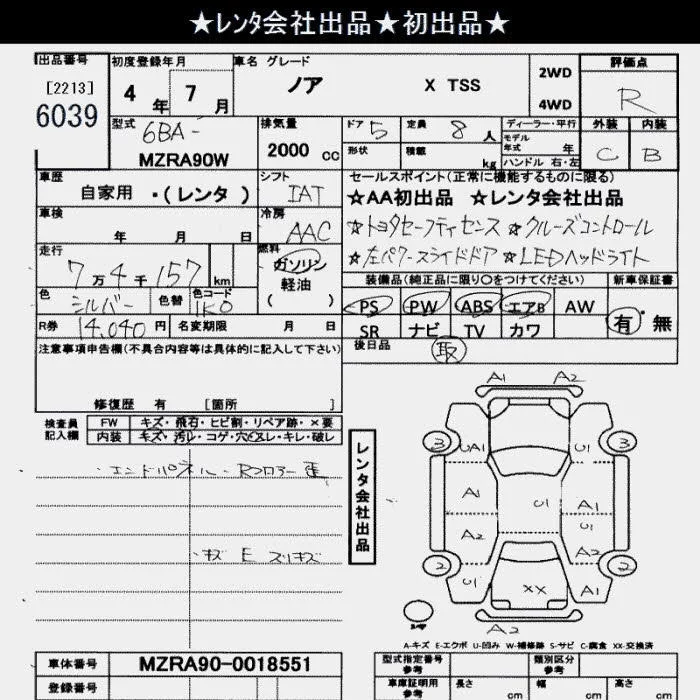 ★レンタ会社出品★初出品★
出品番号 初度登録年月 車名 グレード 評価点
[2213] 4年 7月 ノア X TSS 2WD R
6039 4WD
型式 6BA- 排気量 ドア 5 定員 8人 ディーラー・平行 外装 内装
MZRA90W 2000cc 形状 積載 kg モデル年式 年 C B
ハンドル 右・左
車歴 シフト セールスポイント(正常に機能するものに限る)
自家用 ・(レンタ) IAT ★AA初出品 ★レンタ会社出品
車検 年 月 日 冷房 AAC ☆トヨタセーフティセンス ☆クルーズコントロール
走行 7万4千157km 燃料 ガソリン ☆左パワースライドドア ☆LEDヘッドライト
軽油 ( ) 装備品(純正品に限り○をつけてください) 新車保証書
色 シルバー 色替 色コード 1K0 PS PW ABS エアB AW 有・無
R券 14,040円 名変期限 月 日 SR ナビ TV カワ
注意事項申告欄(不具合内容等は具体的に記入して下さい) 後日品 取
修復歴 有 [箇所 ]
検査員記入欄 FW キズ・飛石・ヒビ割・リペア跡・×要
内装 キズ・汚レ・コゲ・穴・スレ・キレ・破レ
・エンドパネル・Rフロアー歪
・キズ E スリキズ
レンタ会社出品
A1 A2
3 UA1 U1 3
A1 U1 A1
U1
A2 A2
2 U1 XX A1 2
A2
A-キズ E-エクボ U-凹み W-補修跡 S-サビ C-腐食 XX-交換済
車体番号 MZRA90-0018551 型式指定番号 参考 類別区分 参考
登録番号 車庫証明用 参考 長さ cm 幅 cm 高さ cm